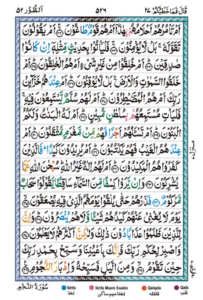 قَالَ فَمَا خَطْبُكُمْ ٢٧ الطُّوْر ٥٢
اَمْ تَاْمُرُهُمْ اَحْلَامُهُمْ بِهٰذَآ اَمْ هُمْ قَوْمٌ طَاغُوْنَ اَمْ يَقُوْلُوْنَ
تَقَوَّلَهٗ بَلْ لَّا يُؤْمِنُوْنَ فَلْيَاْتُوْا بِحَدِيْثٍ مِّثْلِهٖٓ اِنْ كَانُوْا
صٰدِقِيْنَ اَمْ خُلِقُوْا مِنْ غَيْرِ شَيْءٍ اَمْ هُمُ الْخٰلِقُوْنَ اَمْ
خَلَقُوا السَّمٰوٰتِ وَالْاَرْضَ بَلْ لَّا يُوْقِنُوْنَ اَمْ عِنْدَهُمْ خَزَآئِنُ
رَبِّكَ اَمْ هُمُ الْمُصَۜيْطِرُوْنَ اَمْ لَهُمْ سُلَّمٌ يَّسْتَمِعُوْنَ فِيْهِ
فَلْيَاْتِ مُسْتَمِعُهُمْ بِسُلْطٰنٍ مُّبِيْنٍ اَمْ لَهُ الْبَنٰتُ وَلَكُمُ
الْبَنُوْنَ اَمْ تَسْـَٔلُهُمْ اَجْرًا فَهُمْ مِّنْ مَّغْرَمٍ مُّثْقَلُوْنَ اَمْ
عِنْدَهُمُ الْغَيْبُ فَهُمْ يَكْتُبُوْنَ اَمْ يُرِيْدُوْنَ كَيْدًا فَالَّذِيْنَ
كَفَرُوْا هُمُ الْمَكِيْدُوْنَ اَمْ لَهُمْ اِلٰهٌ غَيْرُ اللّٰهِ سُبْحٰنَ اللّٰهِ عَمَّا
يُشْرِكُوْنَ وَاِنْ يَّرَوْا كِسْفًا مِّنَ السَّمَآءِ سَاقِطًا يَّقُوْلُوْا سَحَابٌ
مَّرْكُوْمٌ فَذَرْهُمْ حَتّٰى يُلٰقُوْا يَوْمَهُمُ الَّذِيْ فِيْهِ يُصْعَقُوْنَ
يَوْمَ لَا يُغْنِيْ عَنْهُمْ كَيْدُهُمْ شَيْـًٔا وَّلَا هُمْ يُنْصَرُوْنَ وَاِنَّ
لِلَّذِيْنَ ظَلَمُوْا عَذَابًا دُوْنَ ذٰلِكَ وَلٰكِنَّ اَكْثَرَهُمْ لَا يَعْلَمُوْنَ
وَاصْبِرْ لِحُكْمِ رَبِّكَ فَاِنَّكَ بِاَعْيُنِنَا وَسَبِّحْ بِحَمْدِ رَبِّكَ
حِيْنَ تَقُوْمُ وَمِنَ الَّيْلِ فَسَبِّحْهُ وَاِدْبَارَ النُّجُوْمِ
سُوْرَةُ النَّجْمِ Ikhfa Ikhfa Meem Saakin Qalqala